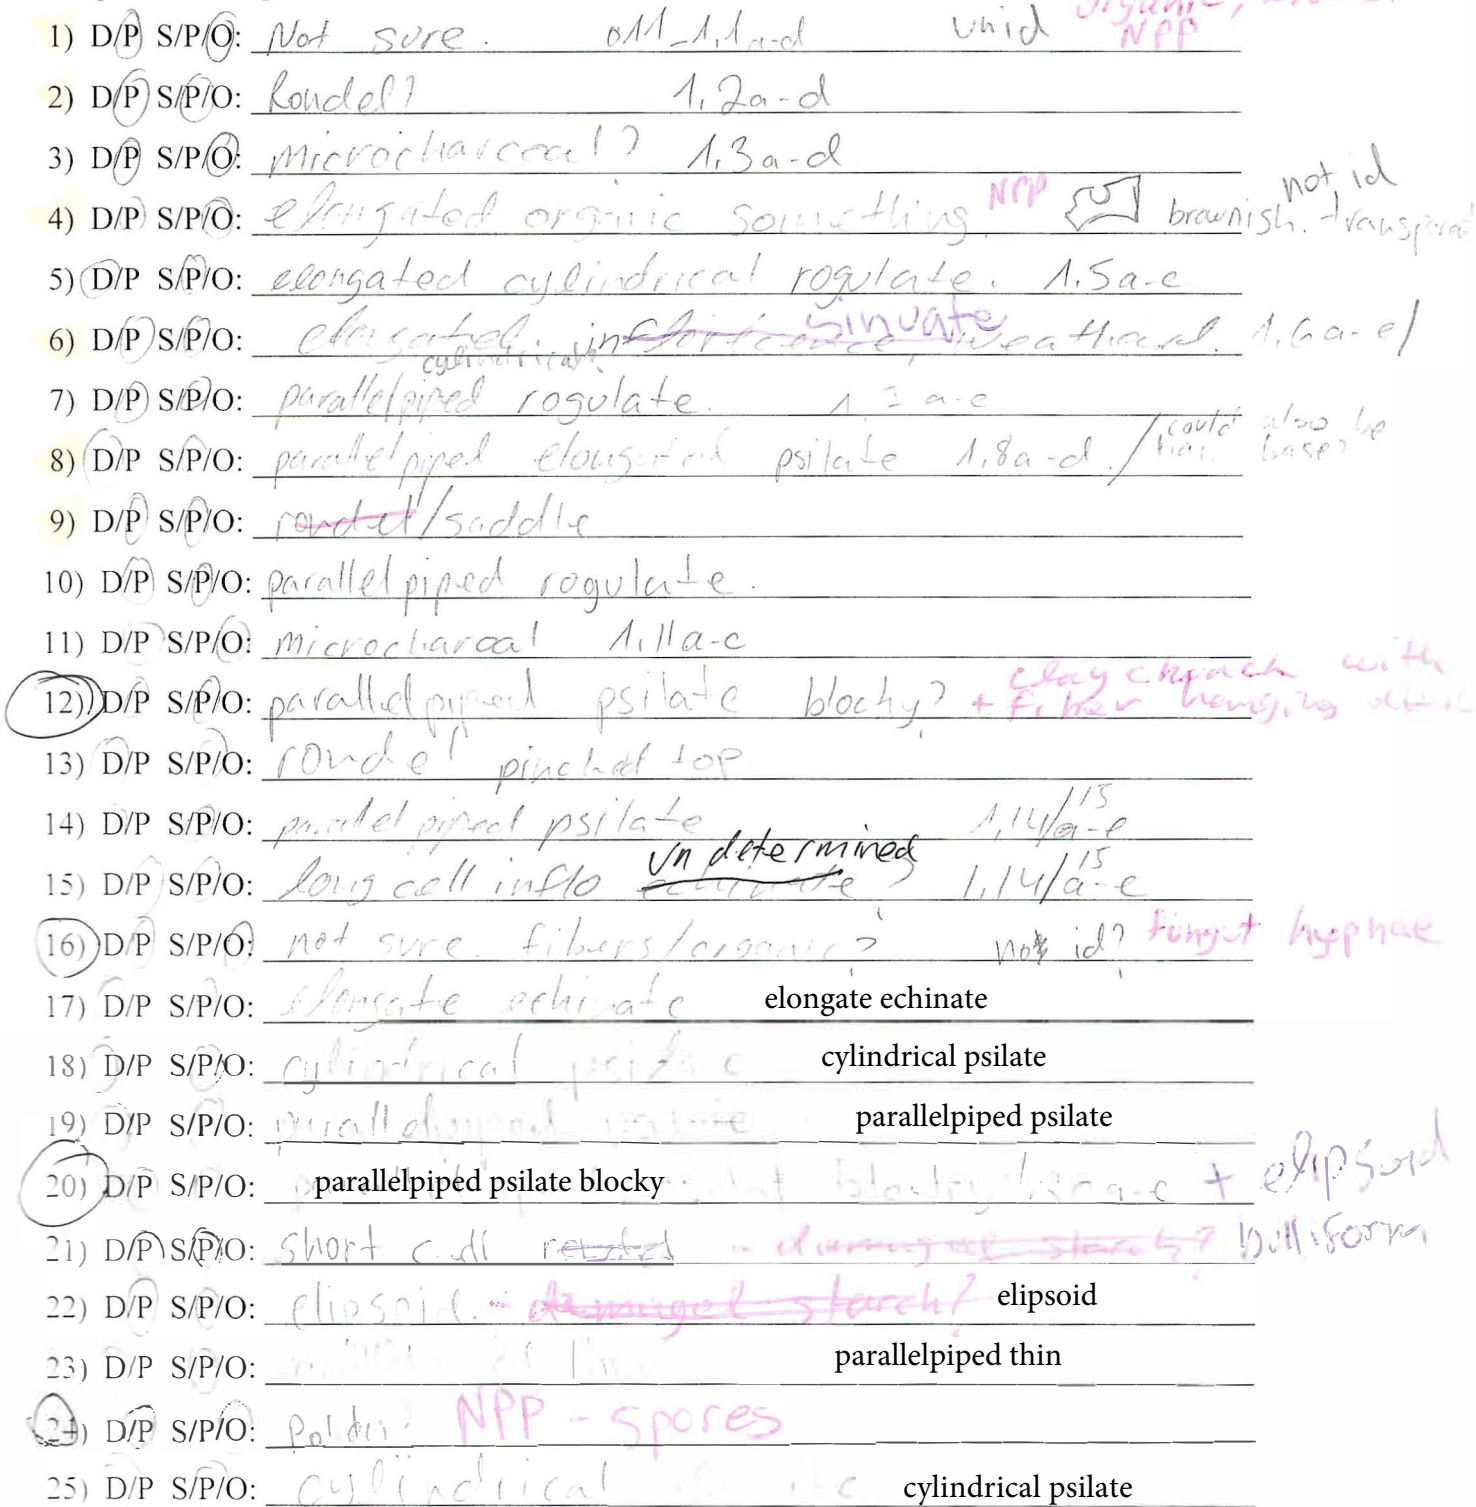 organic,
1) D/P S/P/O: Not sure. 011_1.1a-d unid NPP
2) D/P S/P/O: Rondel? 1.2a-d
3) D/P S/P/O: microcharcoal? 1.3a-d
not id
4) D/P S/P/O: elongated organic something NPP brownish. transparent
5) D/P S/P/O: elongated cylindrical rogulate. 1.5a-e
6) D/P S/P/O: elongated. sinuate weathered. 1.6a-e/
cylindrical?
7) D/P S/P/O: parallelpiped rogulate. 1.7a-e
could also be
8) D/P S/P/O: parallelpiped elongated psilate 1.8a-d. / hair base?
9) D/P S/P/O: rondel/saddle
10) D/P S/P/O: parallelpiped rogulate.
11) D/P S/P/O: microcharcoal 1.11a-c
clay chunk with
12) D/P S/P/O: parallelpiped psilate blocky? + fiber hanging
13) D/P S/P/O: rondel pinched top
14) D/P S/P/O: parallelpiped psilate 1.14/15 a-e
undetermined
15) D/P S/P/O: long cell inflo echinate? 1.14/15 a-e
16) D/P S/P/O: not sure. fibers/organic? not id? fungut hyphae
17) D/P S/P/O: elongate echinate elongate echinate
18) D/P S/P/O: cylindrical psilate cylindrical psilate
19) D/P S/P/O: parallelpiped psilate
20) D/P S/P/O: parallelpiped psilate blocky + elipsoid
21) D/P S/P/O: short cell - damaged starch? bulliform
22) D/P S/P/O: elipsoid - damaged starch? elipsoid
23) D/P S/P/O: parallelpiped thin
24) D/P S/P/O: NPP - spores
25) D/P S/P/O: cylindrical cylindrical psilate